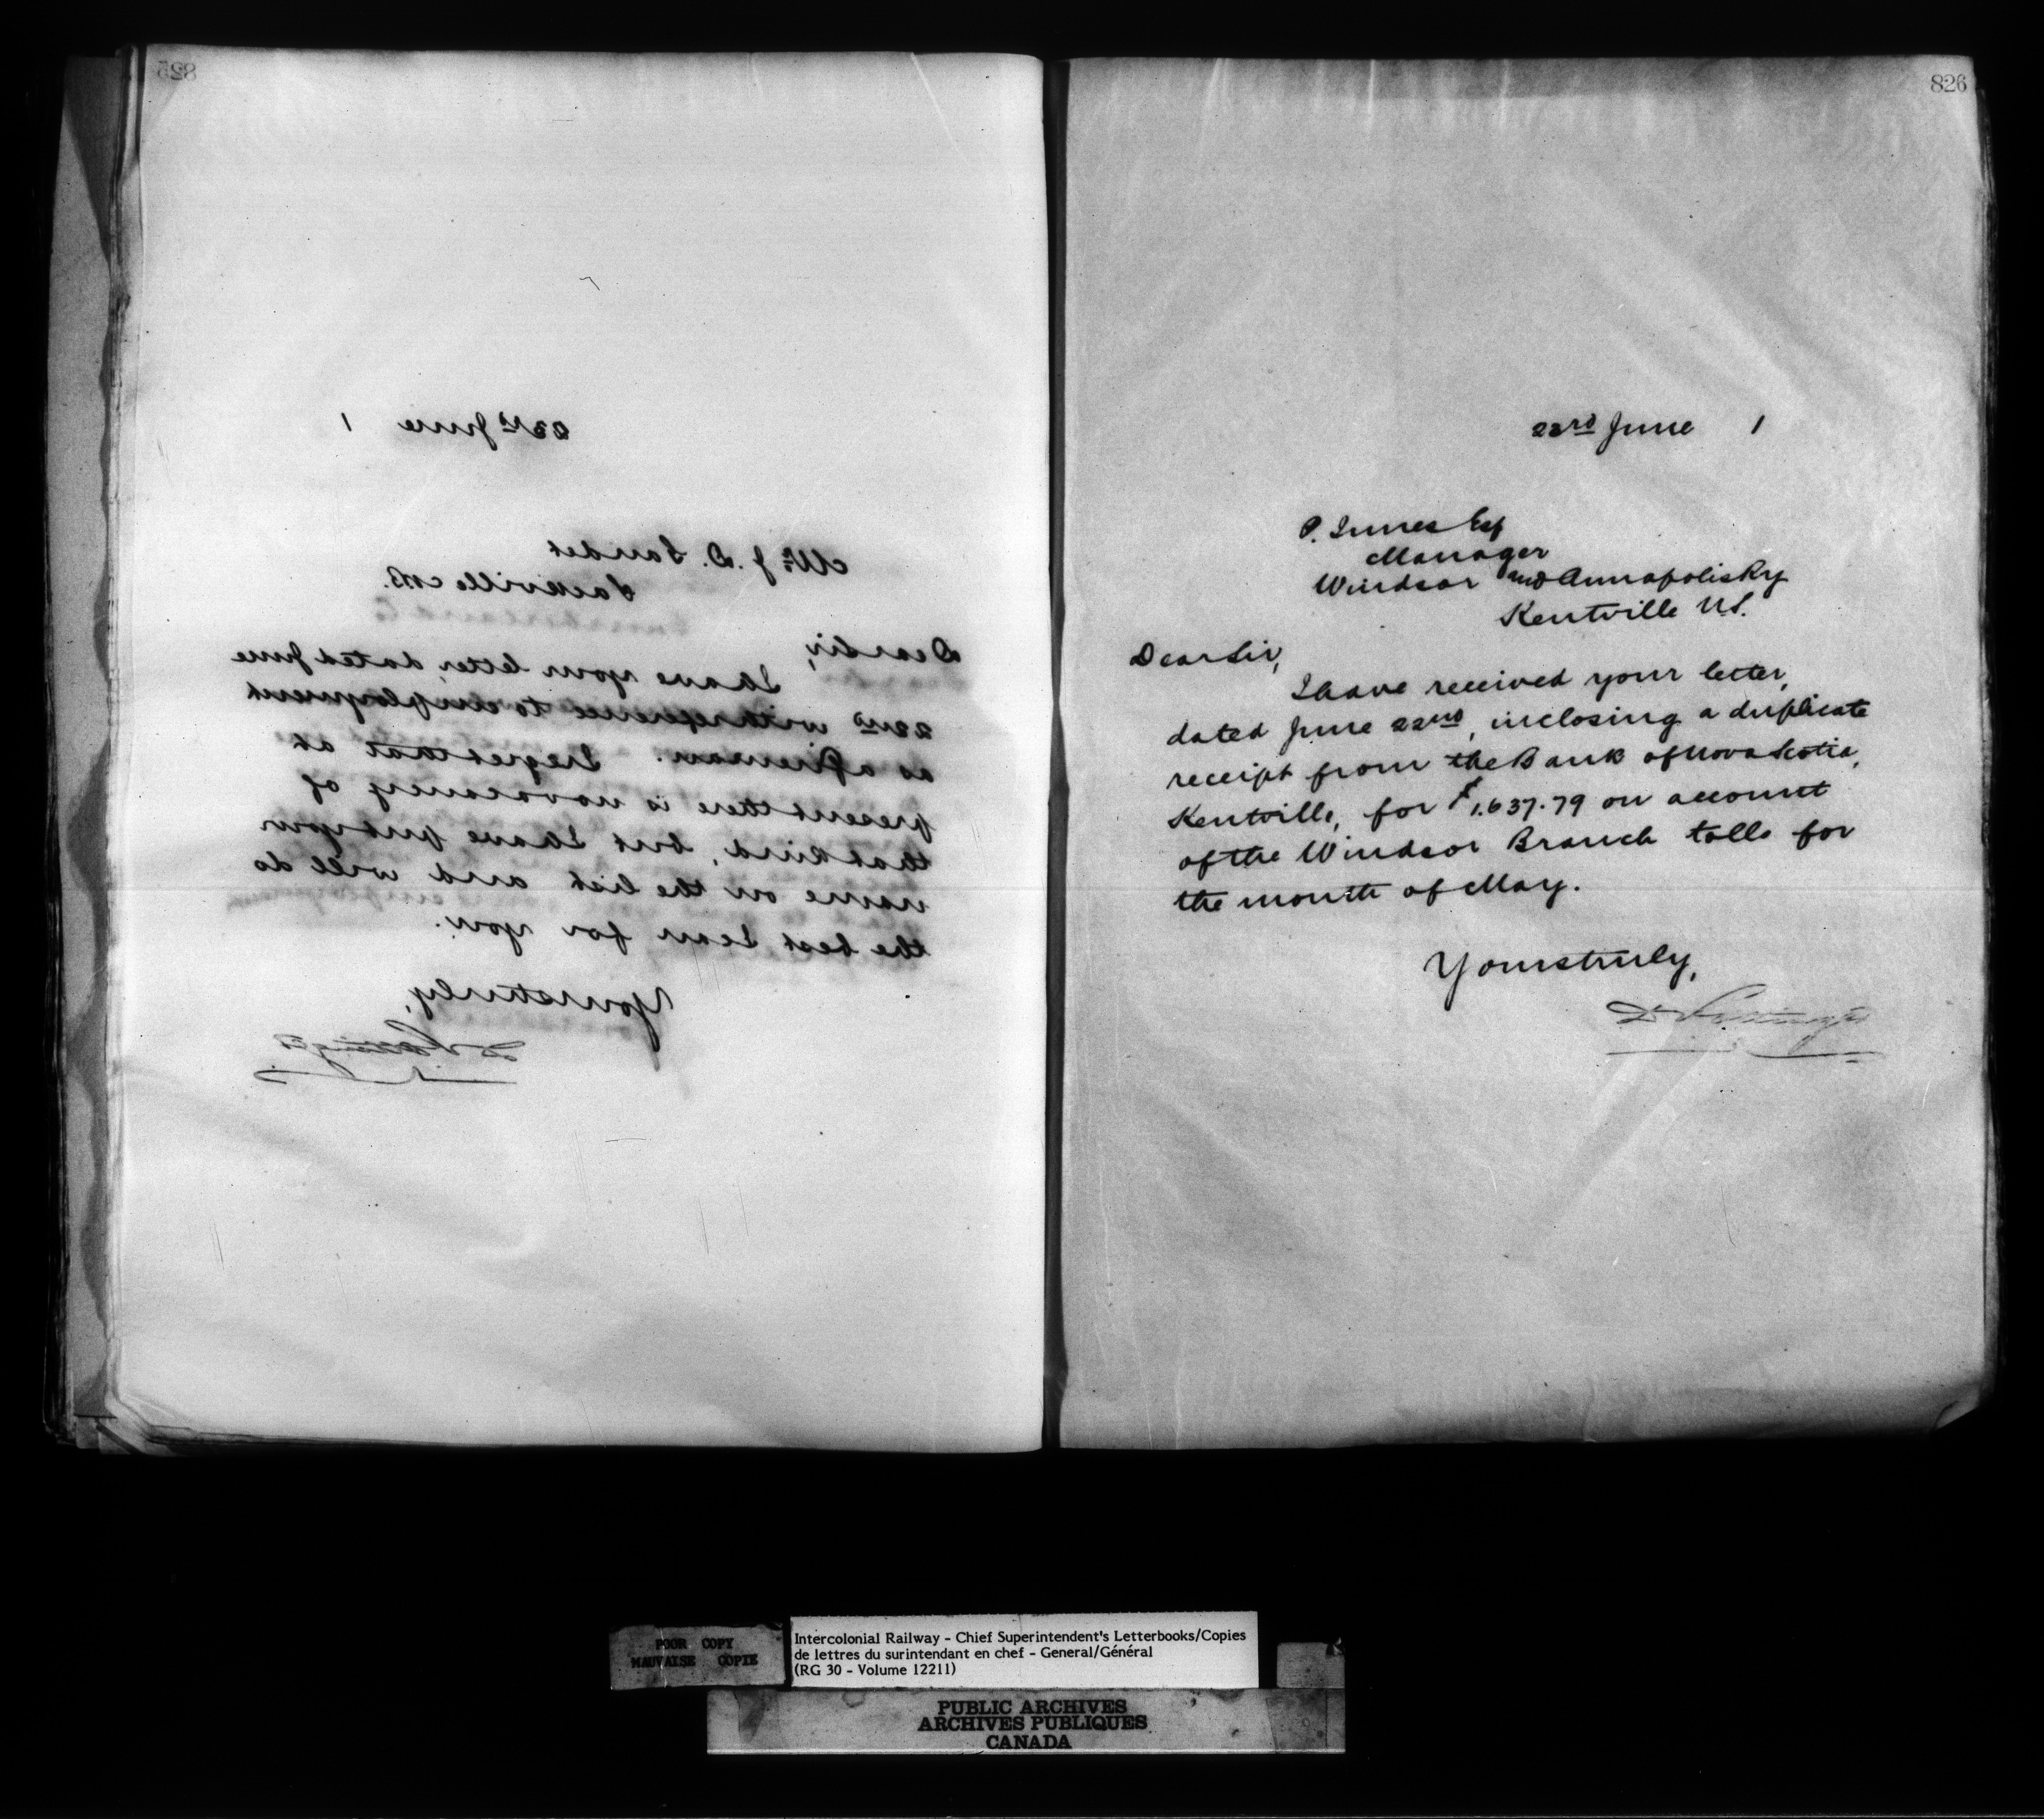 825
22nd June 1
Mr. J. D.
Sackville N.B.
Dear Sir,
I have your letter, dated June
22nd with reference to employment
as a fireman. I regret that at
present there is no vacancy of
that kind, but I have put your
name on the list and will do
the best I can for you.
Yours truly,
826
22rd June 1
P. Innes Esq
Manager
Windsor and Annapolis Ry
Kentville N.S.
Dear Sir,
I have received your letter,
dated June 22nd, inclosing a duplicate
receipt from the Bank of Nova Scotia,
Kentville, for $1.637.79 on account
of the Windsor Branch tolls for
the month of May.
Yours truly,
D Pottinger
POOR COPY
MAUVAISE COPIE
Intercolonial Railway - Chief Superintendent's Letterbooks/Copies
de lettres du surintendant en chef - General/Général
(RG 30 - Volume 12211)
PUBLIC ARCHIVES
ARCHIVES PUBLIQUES
CANADA